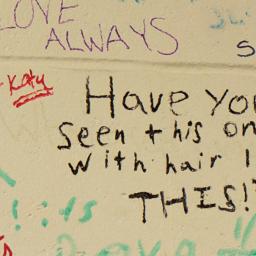 LOVE
ALWAYS
Katy
Have you
seen this on
with hair l
THIS!